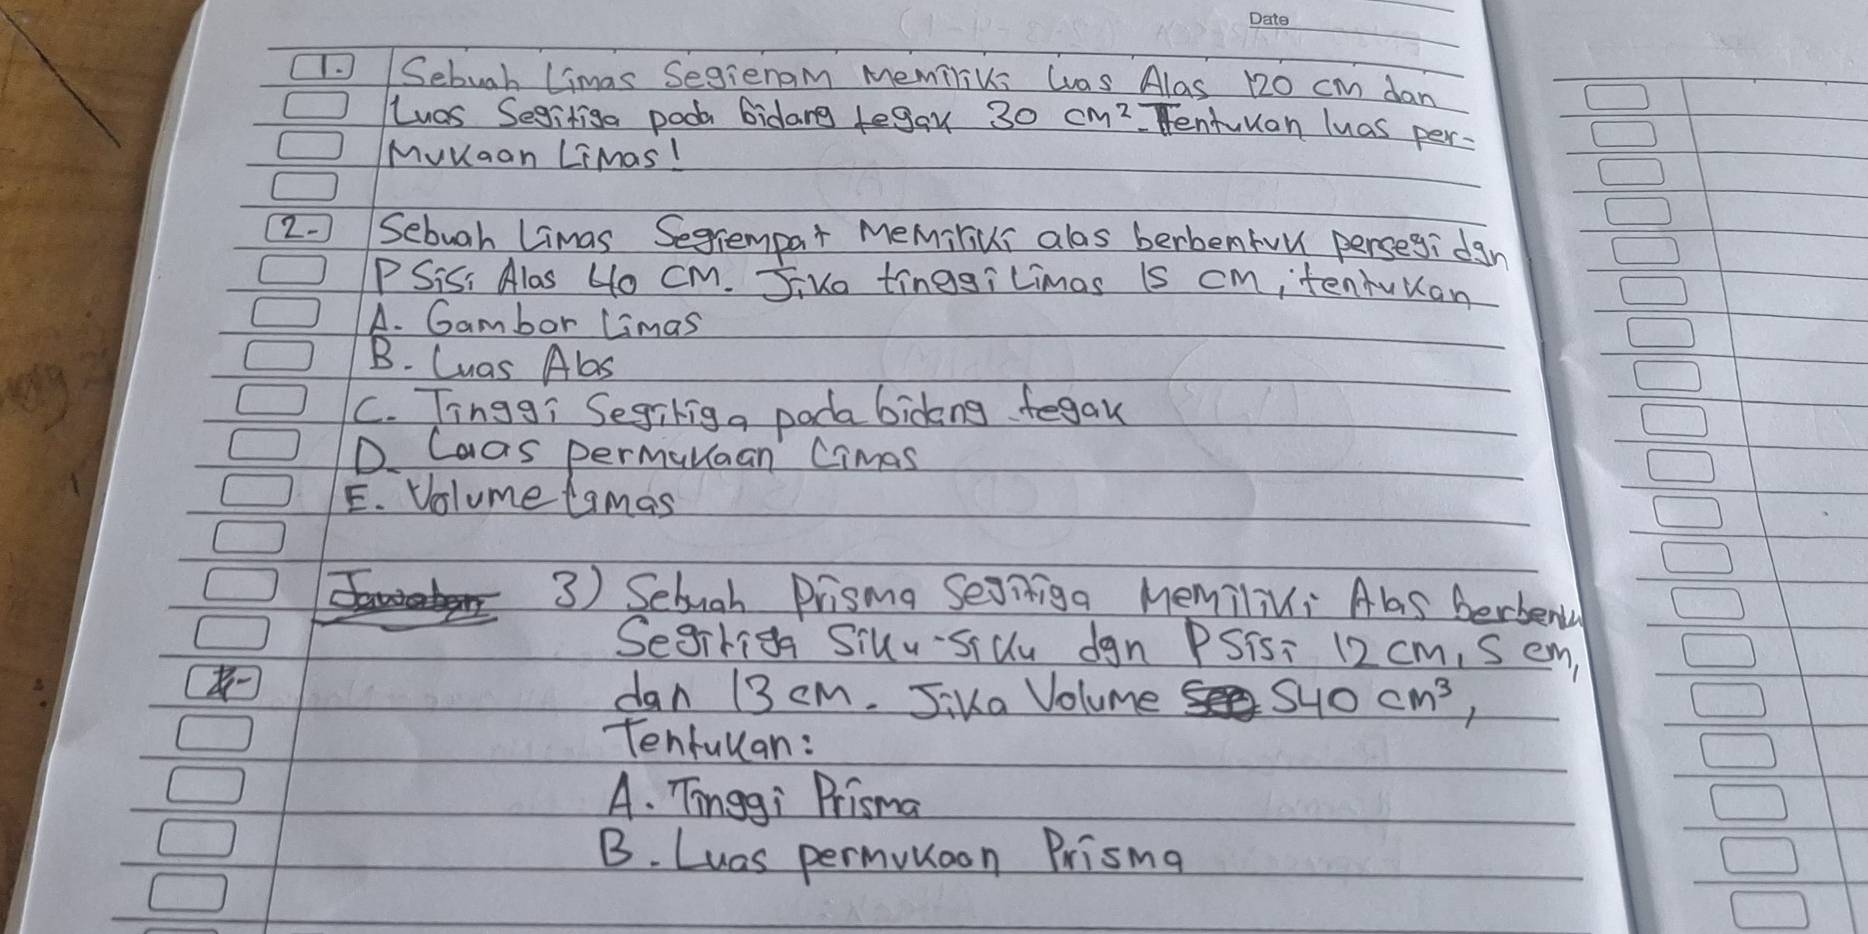 Date
1. Sebuah Limas Segienam Memiliki Luas Alas 120 cm dan
Luas Segitiga pada bidang tegak 30 cm². Tentukan luas per-
Mukaan Limas!
2. Sebuah Limas Segiempat Memiliki alas berbentuk persegi dan
P Sisi Alas 40 cm. Jika tinggi Limas 15 cm, tentukan
A. Gambar Limas
B. Luas Alas
C. Tinggi Segitiga pada bidang tegak
D. Luas permukaan Limas
E. Volume Limas
Jawaban 3) Sebuah Prisma Segitiga Memiliki Alas berbentu
Segitiga Siku-siku dan P Sisi 12 cm, 5 cm,
dan 13 cm. Jika Volume 540 cm³,
Tentukan:
A. Tinggi Prisma
B. Luas permukaan Prisma